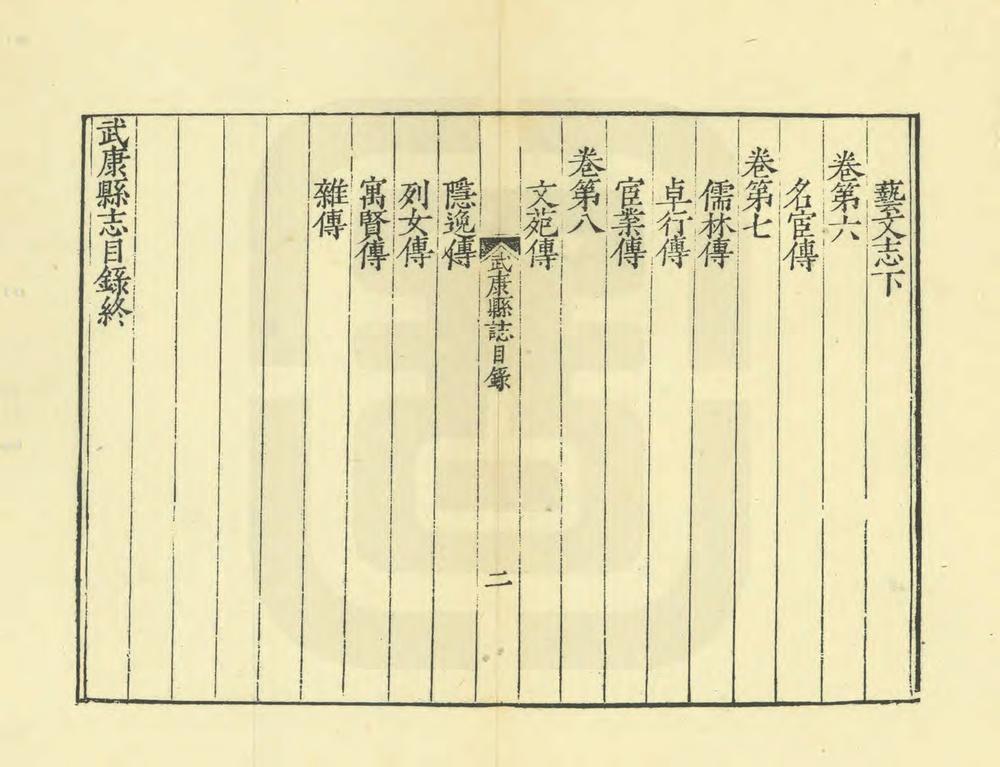 藝文志下
卷第六
名宦傳
卷第七
儒林傳
卓行傳
宦業傳
卷第八
文苑傳
武康縣誌目錄
二
隱逸傳
列女傳
寓賢傳
雜傳
武康縣志目錄終